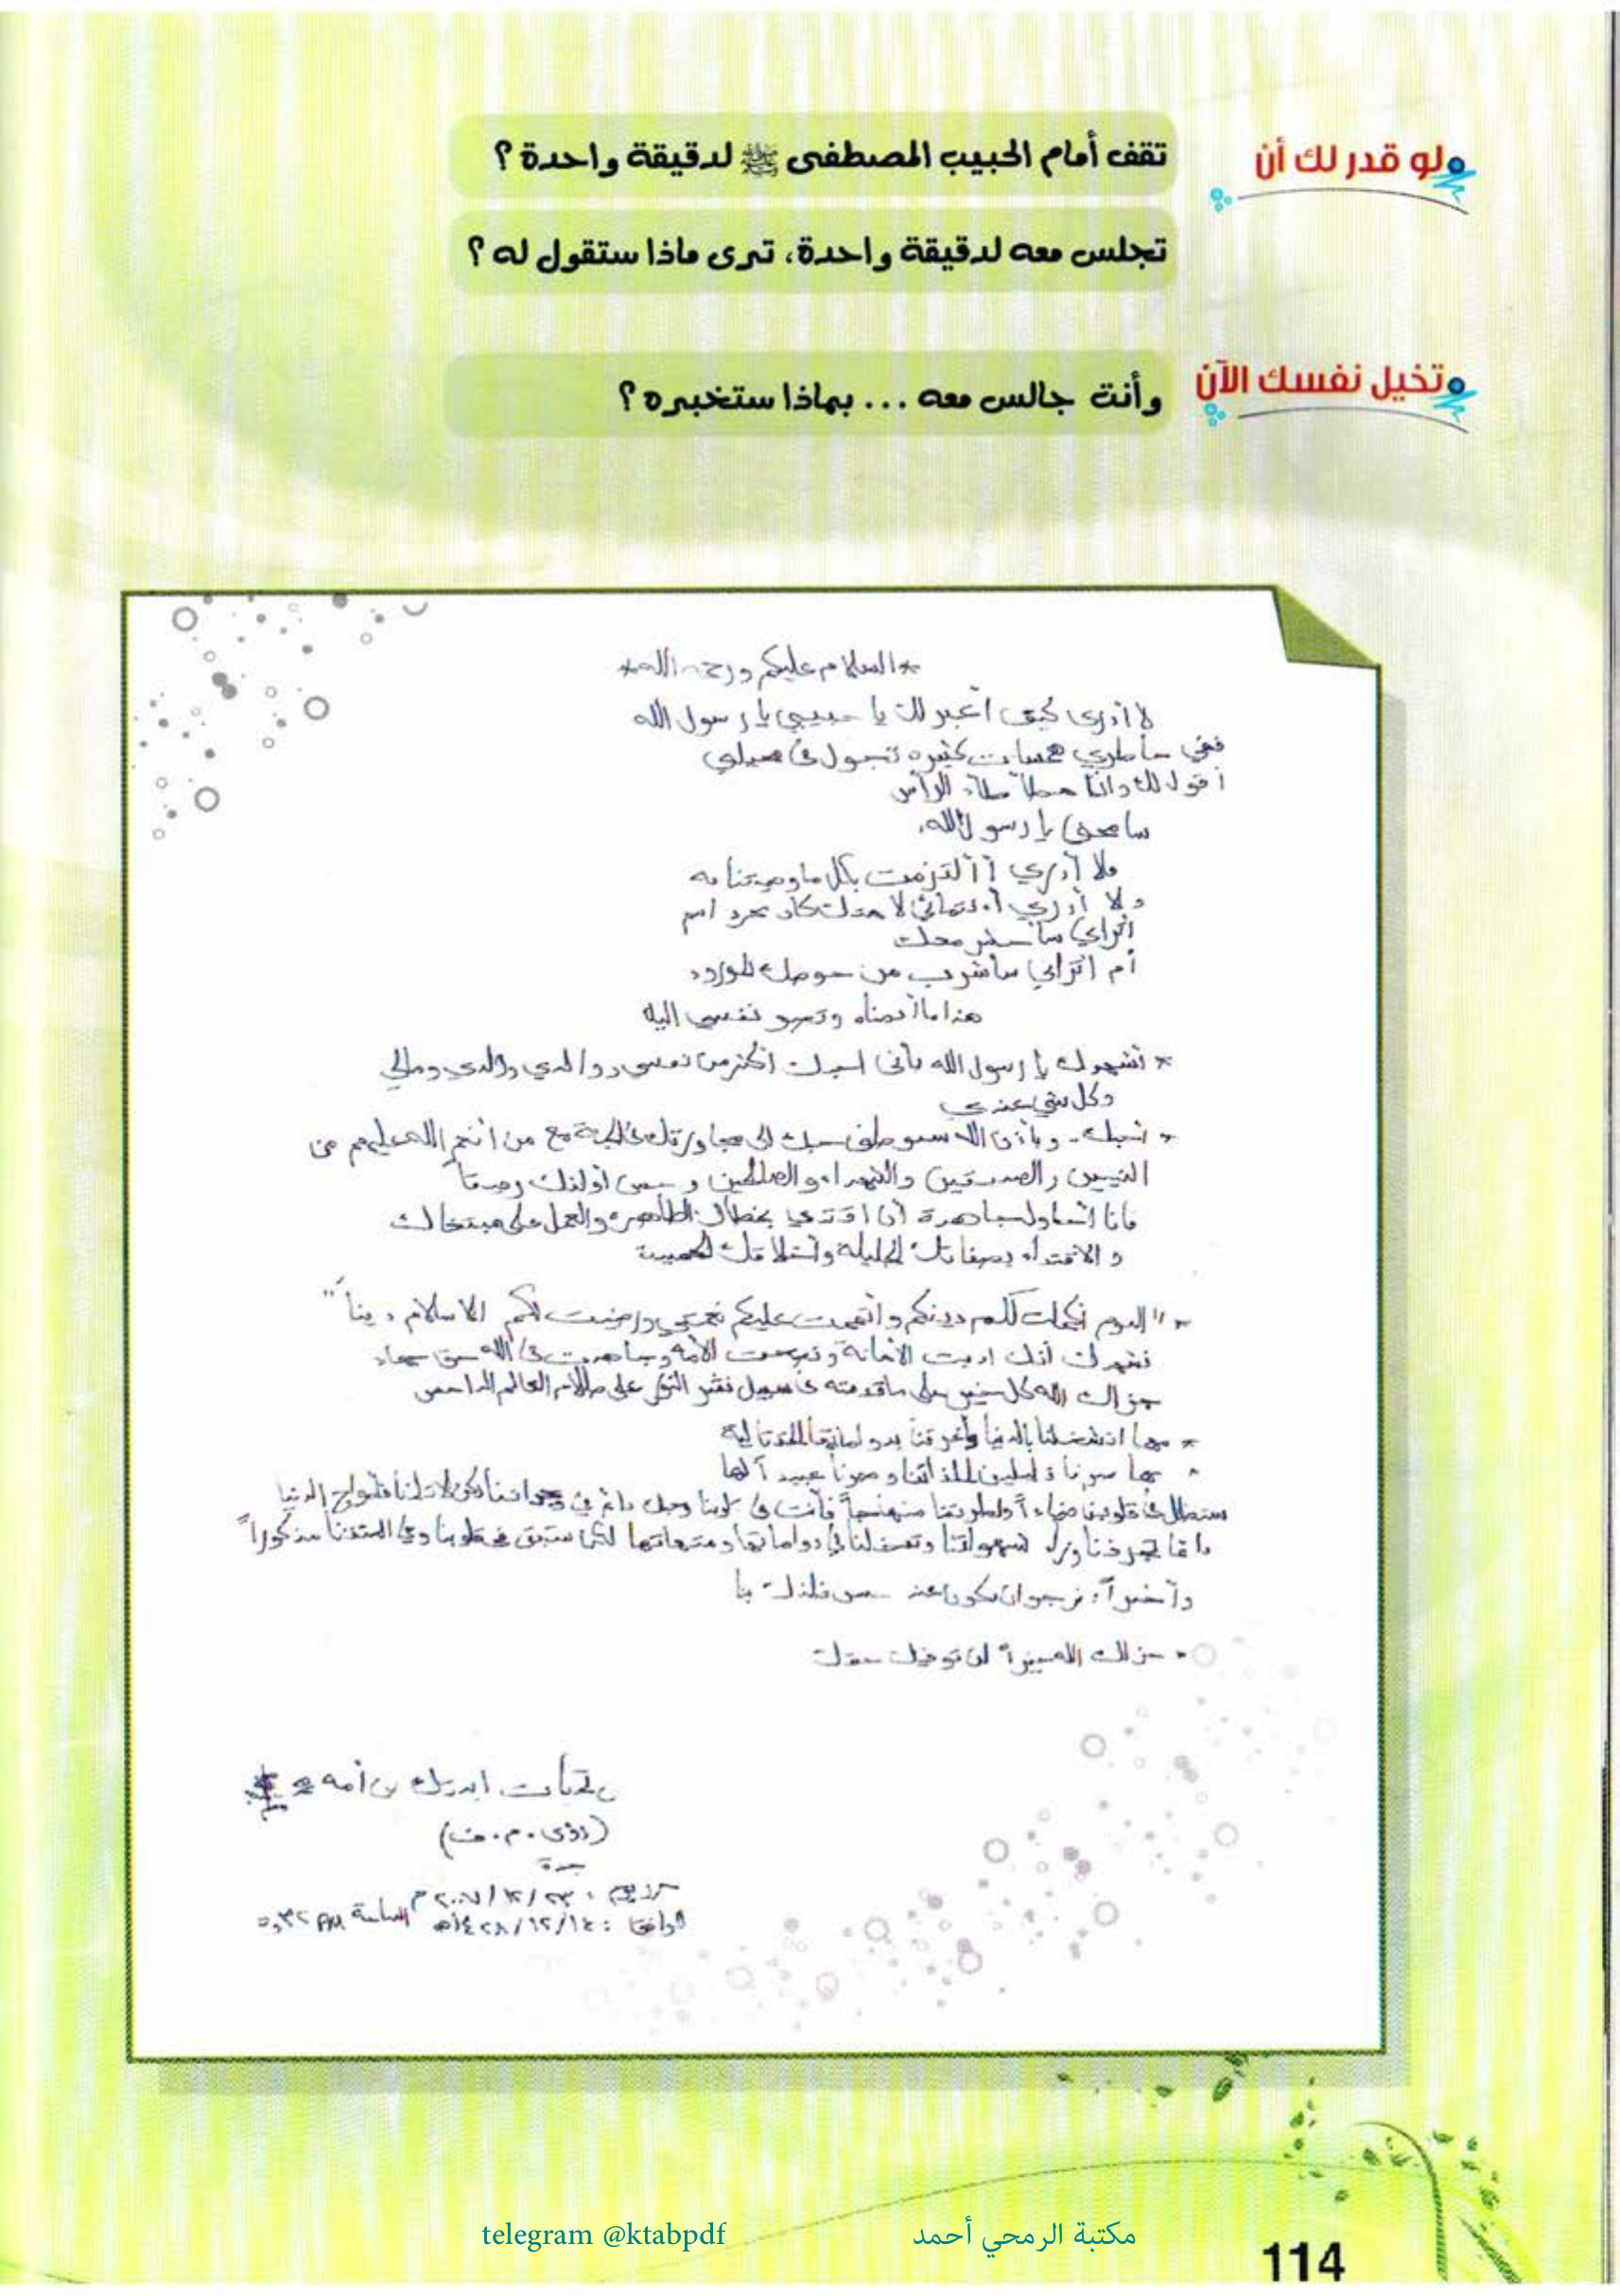 لو قدر لك أن
تقف أمام الحبيب المصطفى ﷺ لدقيقة واحدة ؟
تجلس معه لدقيقة واحدة، ترى ماذا ستقول له ؟
تخيل نفسك الآن
وأنت جالس معه ... بماذا ستخبره ؟
*السلام عليكم ورحمة الله*
لا أدري كيف أعبر لك يا حبيبي يا رسول الله
ففي خاطري همسات كثيره تجول في
أقول لك وأنا مطأطأ الرأس
سامحني يا رسول الله
فلا أدري أألتزمت بكل ما وصيتنا به
ولا أدري كان مجرد اسم
اتراني سأحشر معك
أم اتراني سأشرب من حوضك المورود
هذا ما أتمناه نفسي إليه
* أشهدك يا رسول الله بأني احبك أكثر من نفسي ووالدي ومالي
وكل شيء عندي
* أحبك وبإذن الله سيوصلني حبك الى مجاورتك في الجنة مع من أنعم الله عليهم من
النبيين والصديقين والشهداء والصالحين وحسن أولئك رفيقا
فأنا أحاول جاهدة أن اقتدي بخطاك الطاهرة والعمل على
والاقتداء بصفاتك الجليلة وأخلاقك الحميدة
* "اليوم أكملت لكم دينكم وأتممت عليكم نعمتي ورضيت لكم الاسلام دينا"
نشهد أنك اديت الأمانة ونصحت الأمة وجاهدت في الله حق جهاد
جزاك الله كل خير على ما قدمته في سبيل نشر النور على ظلام العالم الدامس
* مهما انشغلنا بالدنيا وأغرقنا بدواماتها المتتالية
* مهما صرنا لملذاتنا وصرنا عبيداً لها
ستظل في قلوبنا ضياءاً ولطريقتنا منهجاً فأنت في
وراء شهواتنا ستبقى في قلوبنا وعلى ألسنتنا مذكوراً
وأخيراً: نرجو ان نكون عند حسن ظنك بنا
* جزاك الله خيراً لن نوفيك حقك
جدة
الساعة
114
telegram @ktabpdf
مكتبة الرمحي أحمد